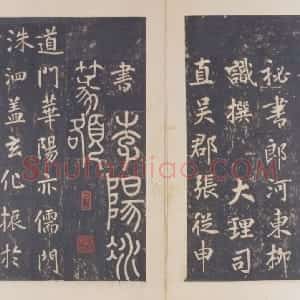 秘書郎河東柳
識撰 大理司
直吳郡張從申
書 李陽冰
篆額
道門華陽亦儒門
洙泗蓋玄化振於
Shufaziliao.COM